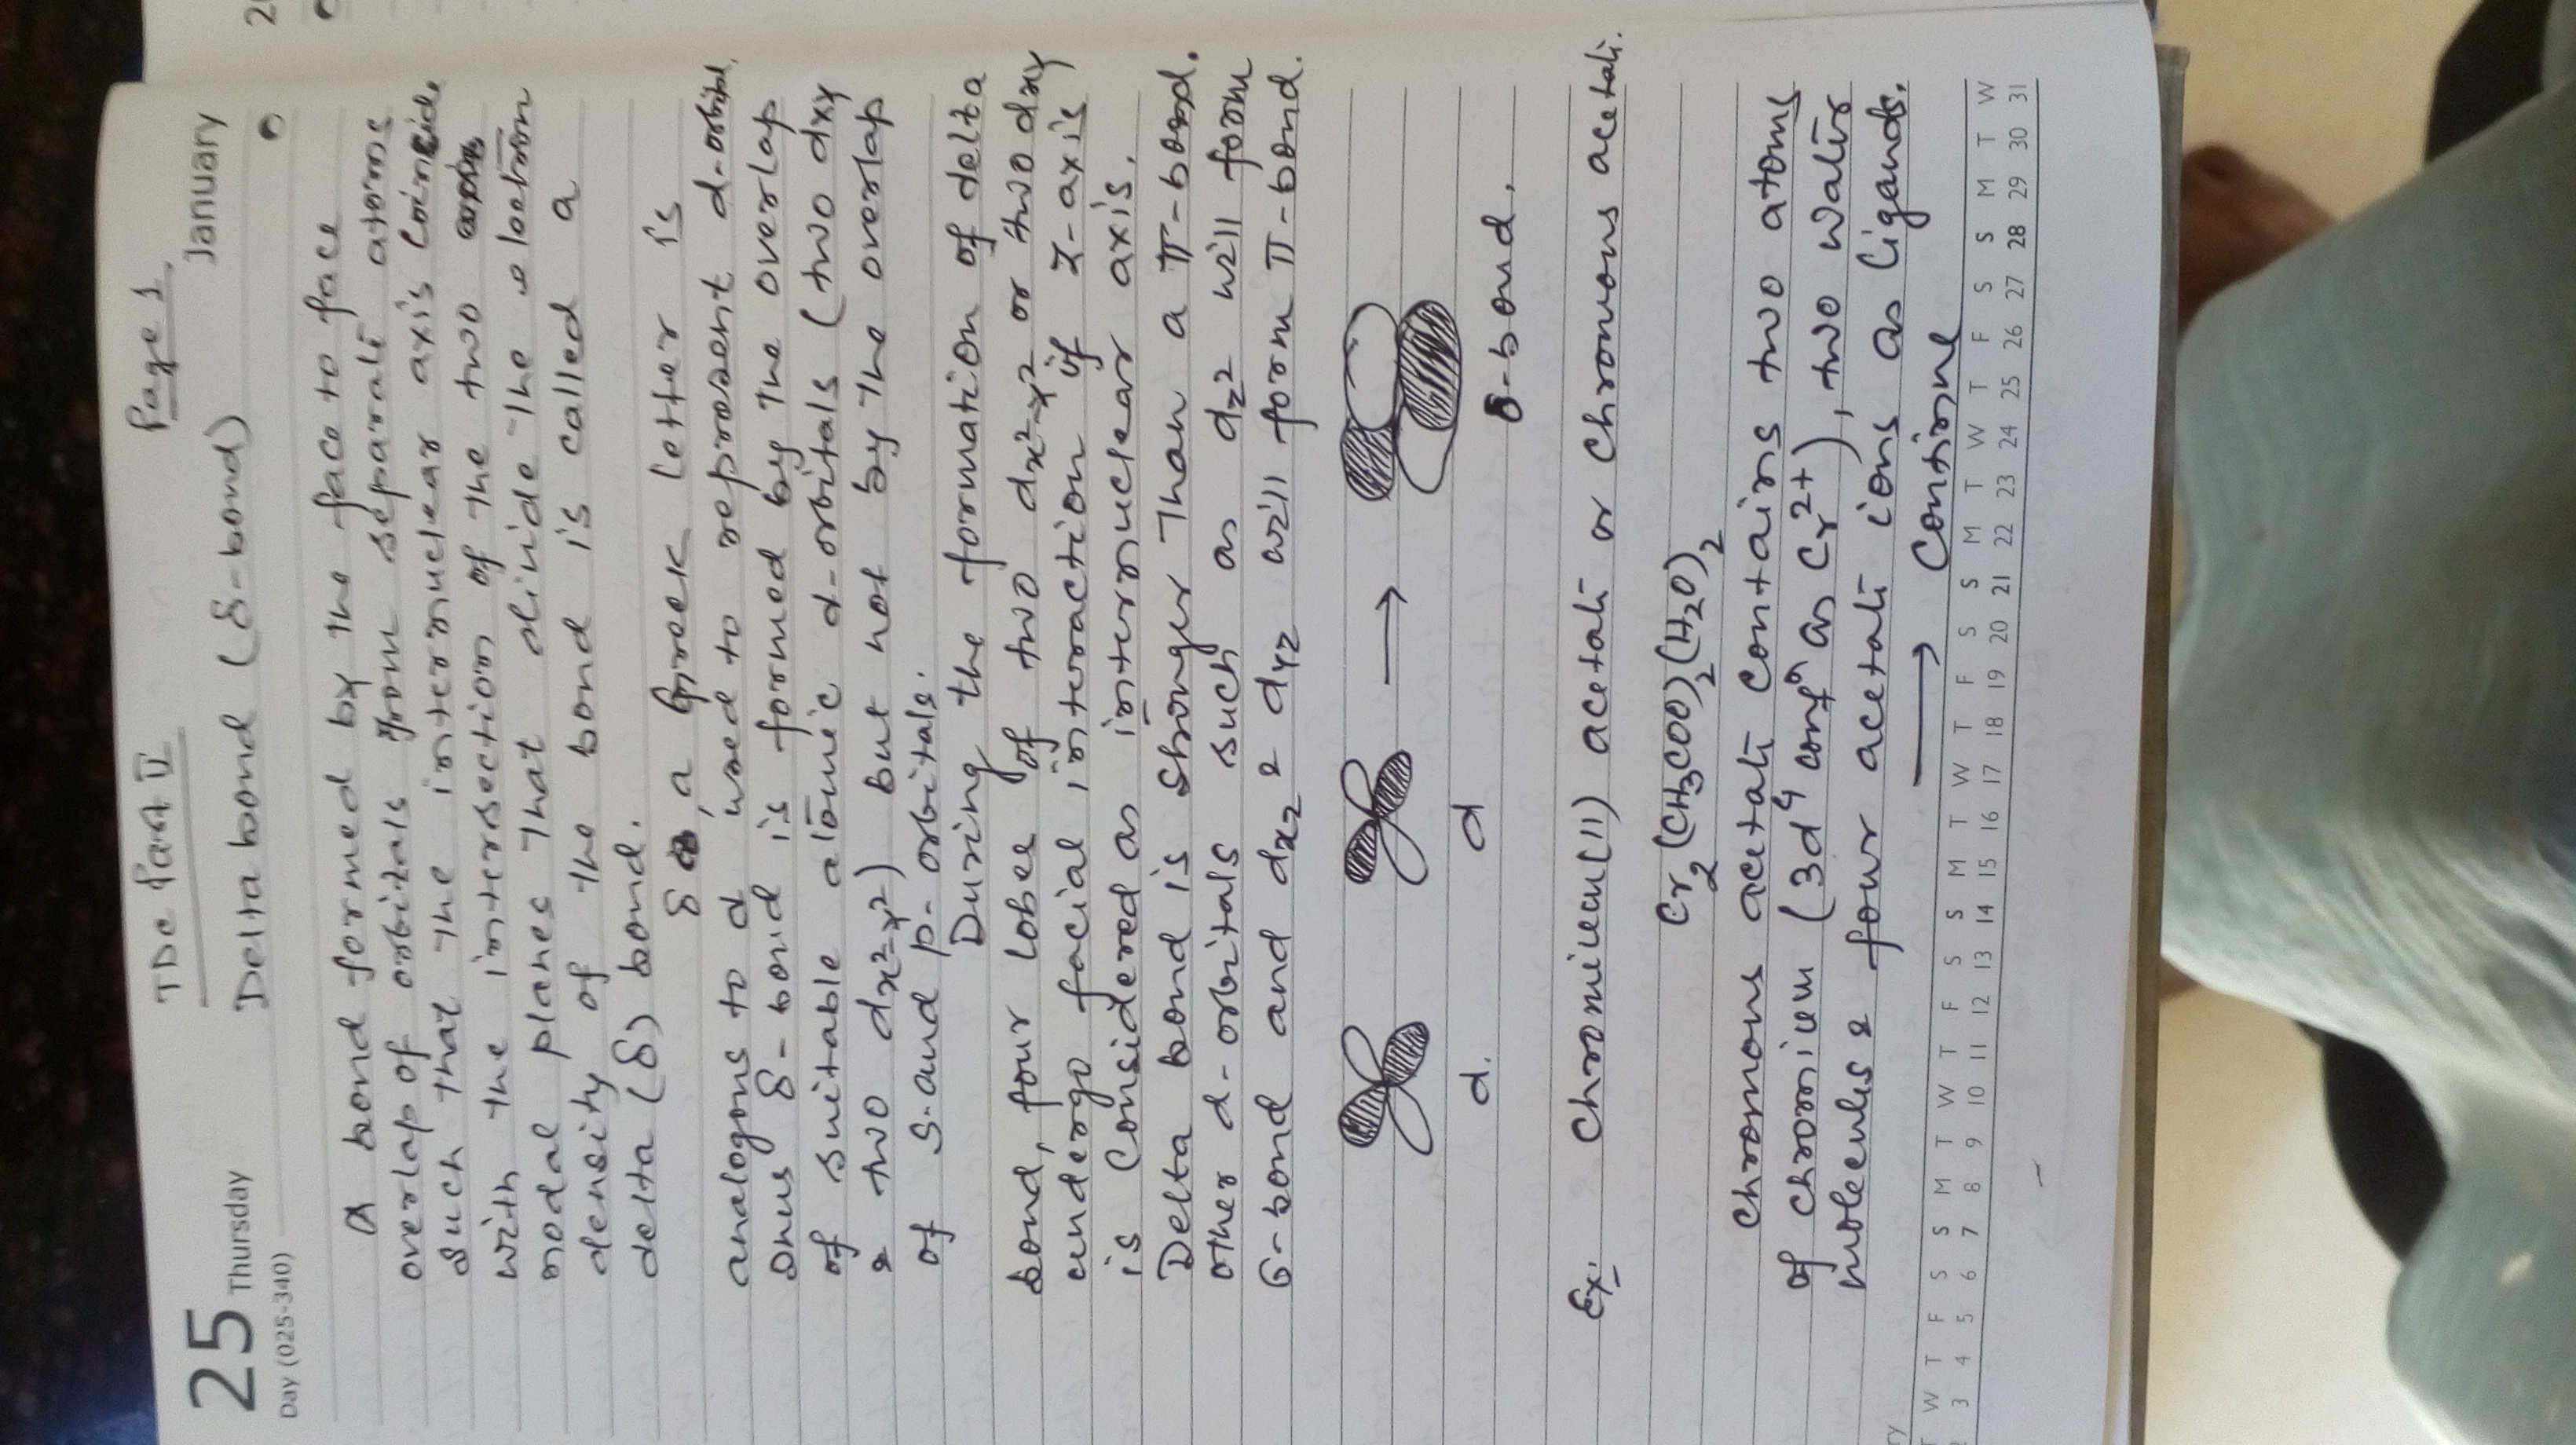 TDC Part II Page 1
25 Thursday January
Day (025-340)
Delta bond (δ-bond)
A bond formed by the face to face
overlap of orbitals from separate atoms
such that the internuclear axis coincide
with the intersection of the two
nodal planes that divide the electron
density of the bond is called a
delta (δ) bond.
δ, a Greek letter is
analogous to d used to represent d-orbital.
Thus δ-bond is formed by the overlap
of suitable atomic d-orbitals (two dxy
& two dx²-y²) but not by the overlap
of s-and p-orbitals.
During the formation of delta
bond, four lobes of two dx²-y² or two dxy
undergo facial interaction if z-axis
is considered as internuclear axis.
Delta bond is stronger than a π-bond.
other d-orbitals such as dz2 will form
σ-bond and dxz & dyz will form π-bond.
d. d δ-bond.
Ex. Chromium(II) acetate or chromous acetate.
Cr2(CH3COO)2(H2O)2
Chromous acetate contains two atoms
of chromium (3d⁴ confⁿ as Cr2+), two water
molecules & four acetate ions as ligands.
→ Continue
W T F S S M T W T F S S M T W T F S S M T W T F S S M T W
3 4 5 6 7 8 9 10 11 12 13 14 15 16 17 18 19 20 21 22 23 24 25 26 27 28 29 30 31